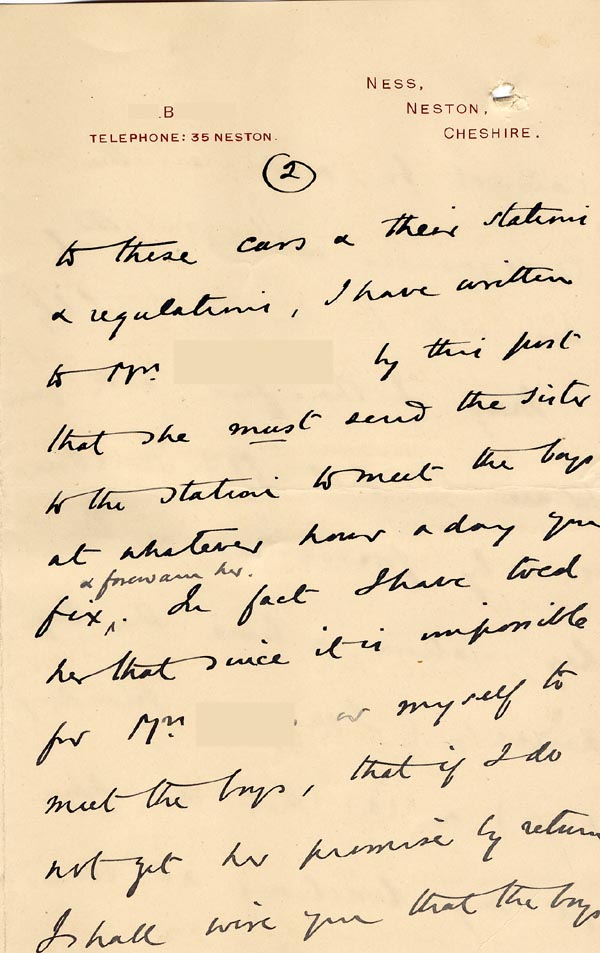 NESS,
.B NESTON,
TELEPHONE: 35 NESTON. CHESHIRE.
2
to these cars & their stations
& regulations, I have written
to Mrs by this post
that she must send the sister
to the station to meet the boys
at whatever hour & day you
& forewarn her.
fix. In fact I have told
her that since it is impossible
for Mrs or myself to
meet the boys, that if I do
not get her promise by return
I shall wire you that the boys